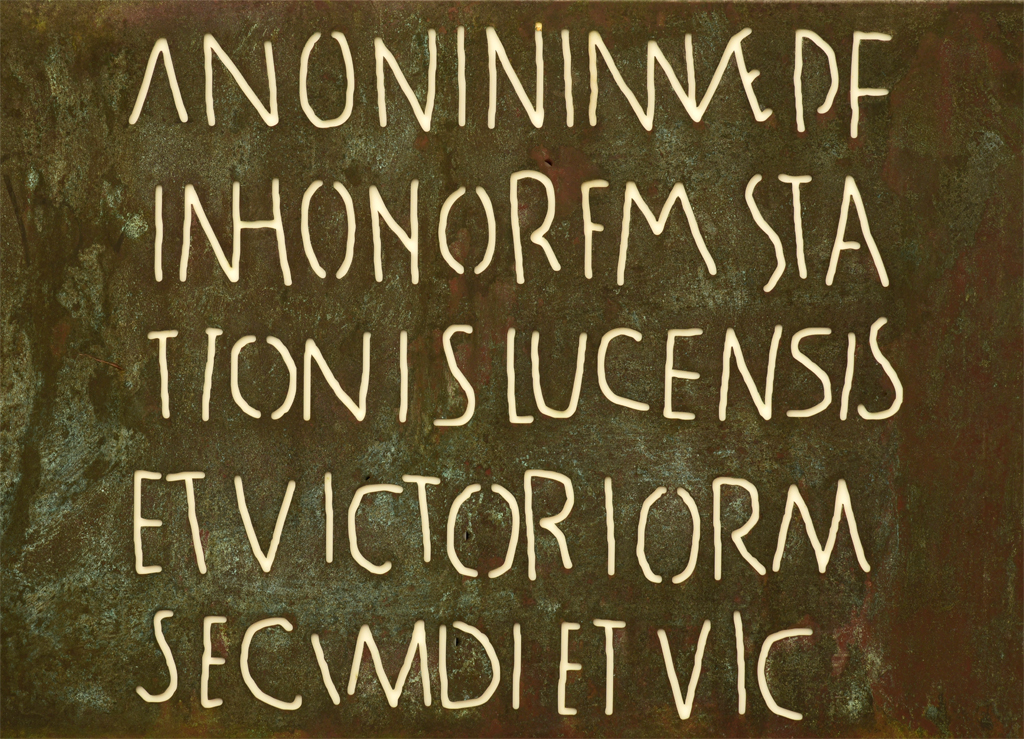 ANONINIANAE DE
IN HONOREM STA
TIONIS LUCENSIS
ET VICTORIORM
SECVNDI ET VIC